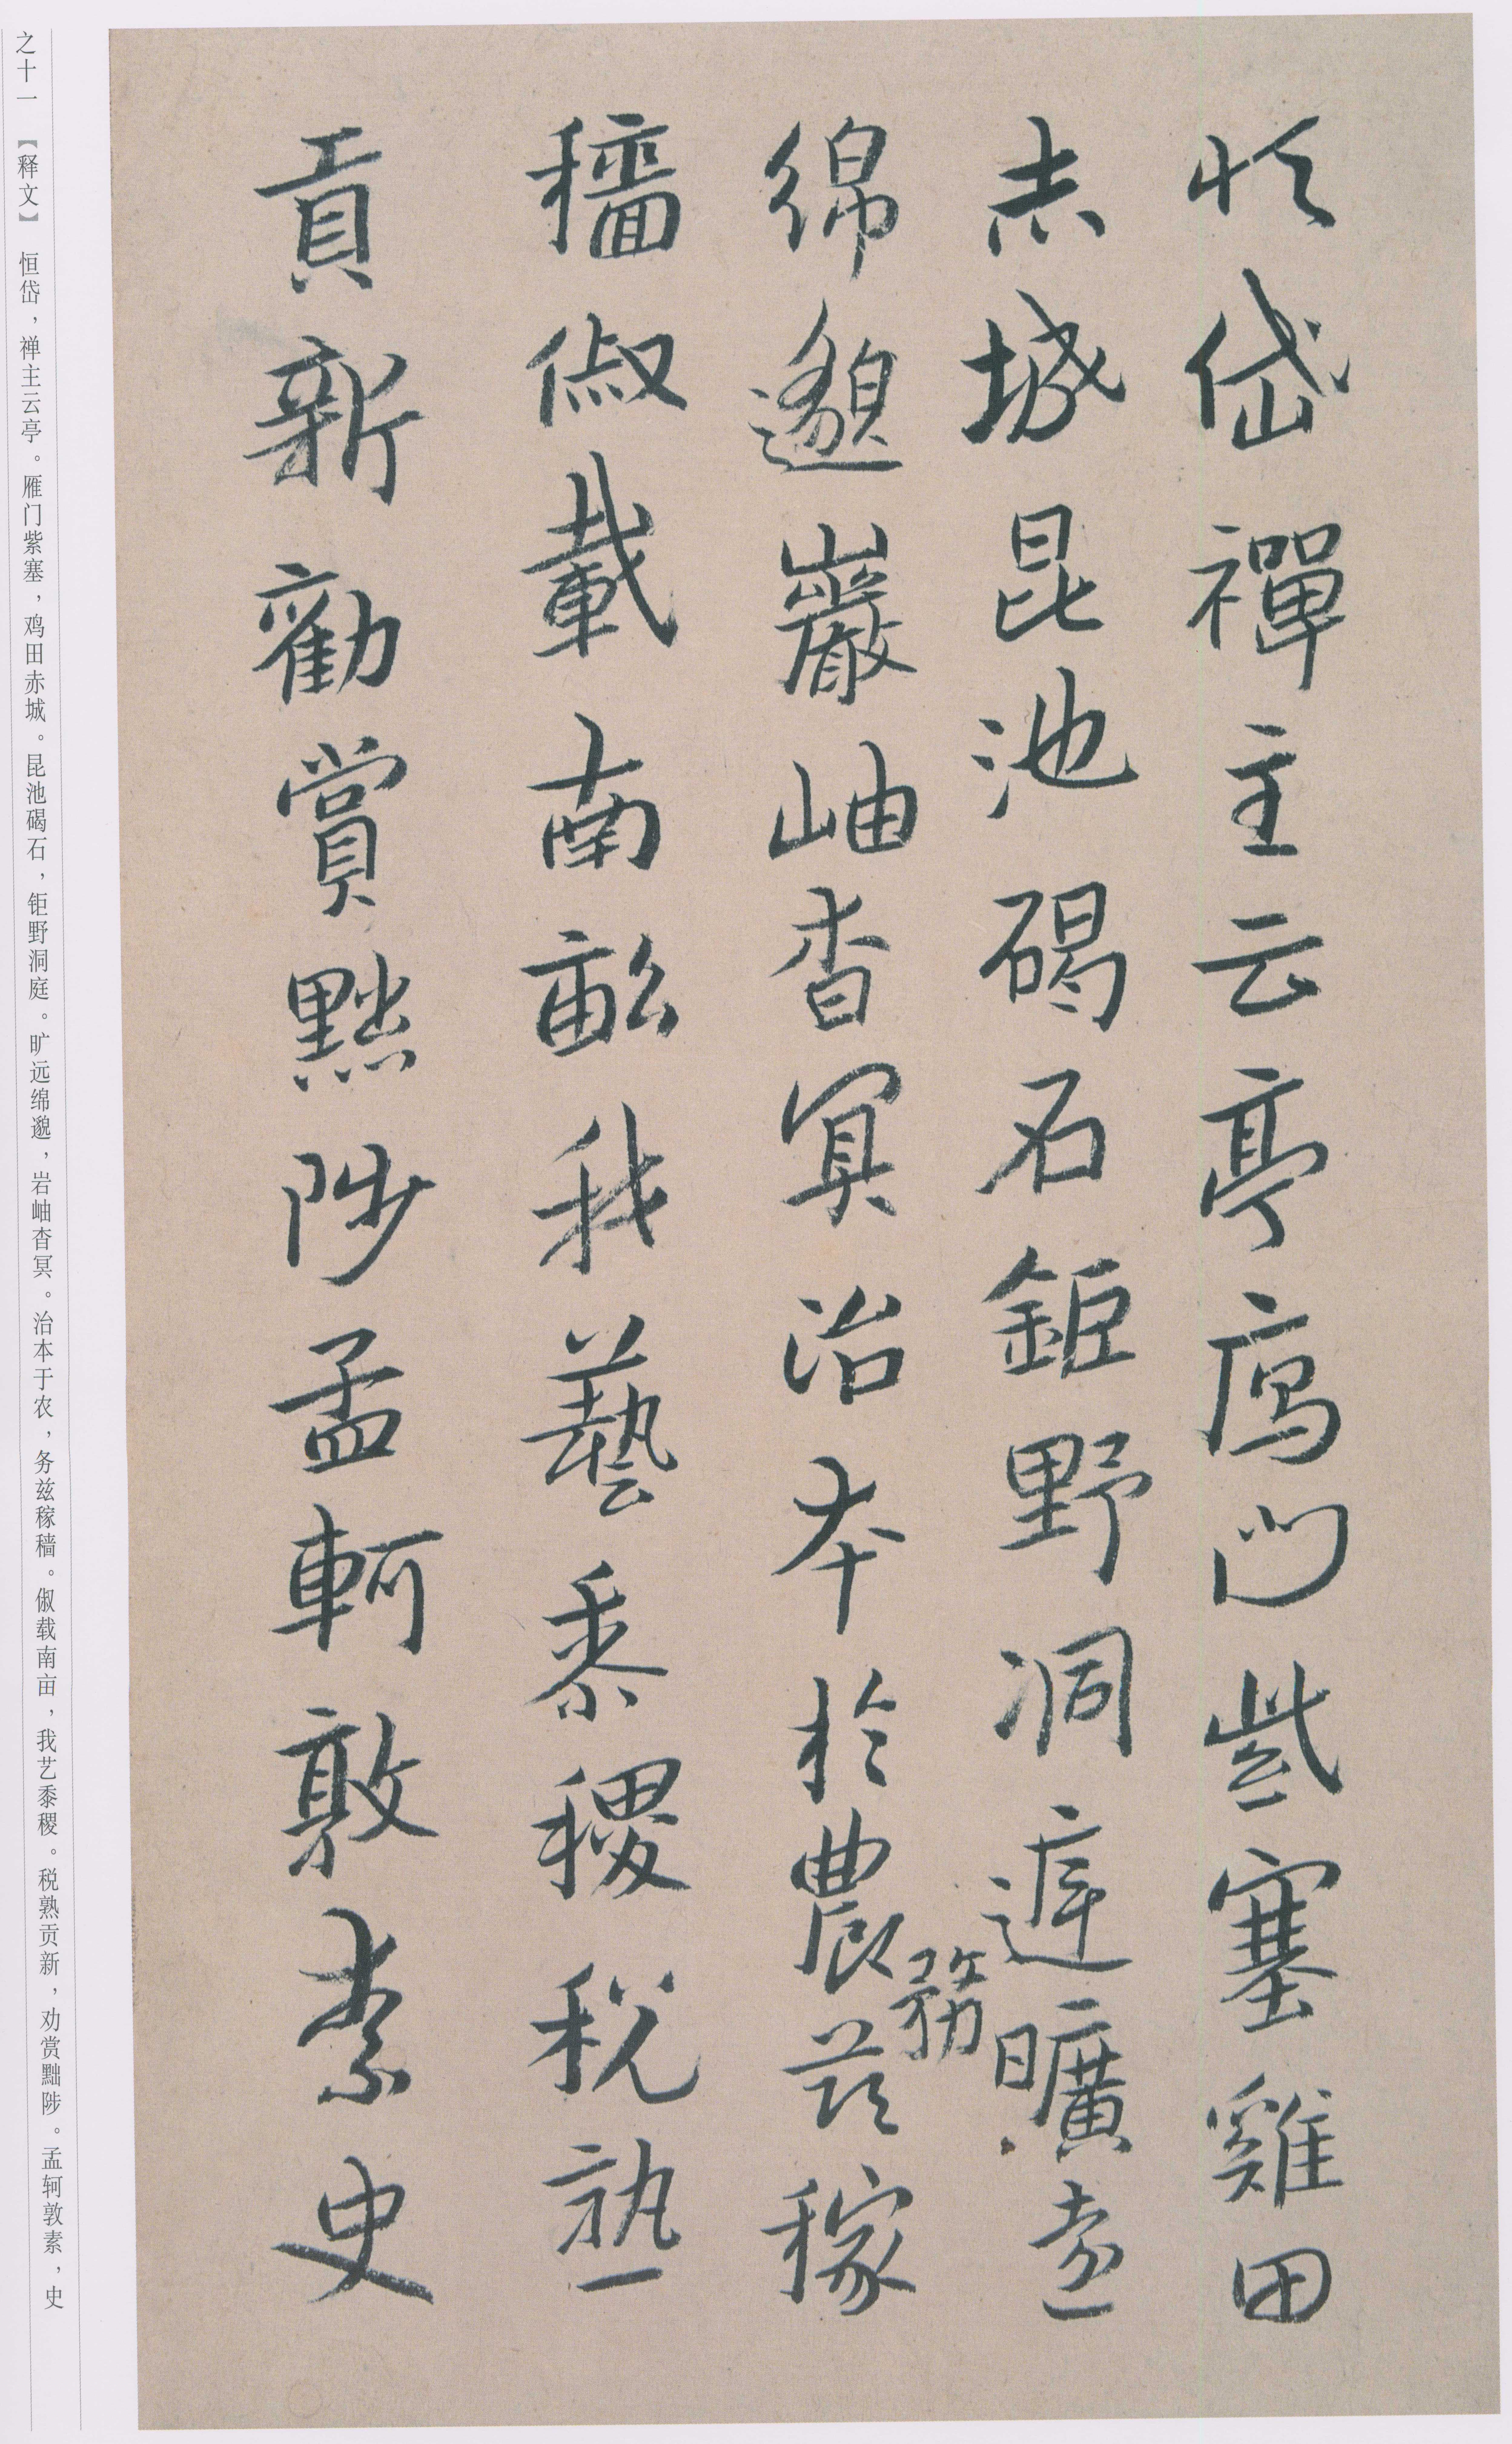 恒岱禪主云亭鴈門紫塞雞田
赤城昆池碣石鉅野洞庭曠遠
綿邈巖岫杳冥治本於農務茲稼
穡俶載南畝我藝黍稷稅熟
貢新勸賞黜陟孟軻敦素史
之十一 【释文】 恒岱，禅主云亭。雁门紫塞，鸡田赤城。昆池碣石，钜野洞庭。旷远绵邈，岩岫杳冥。治本于农，务兹稼穑。俶载南亩，我艺黍稷。税熟贡新，劝赏黜陟。孟轲敦素，史